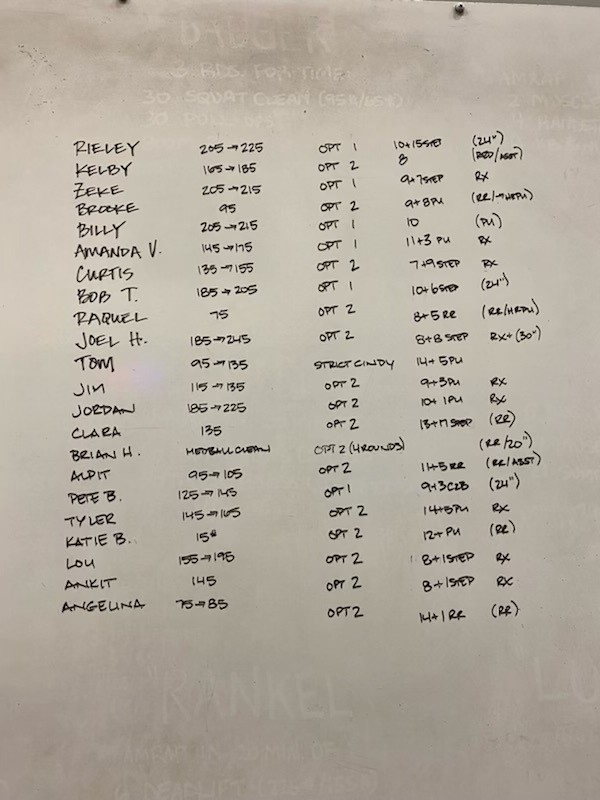 3 RDS FOR TIME
30 SQUAT CLEAN (95#/65#)
RIELEY 205→225 OPT 1 10+15STEP (24")
KELBY 165→185 OPT 2 8
ZEKE 205→215 OPT 1 9+7STEP RX
BROOKE 95 OPT 2 9+8PU (RR/→HRPU)
BILLY 205→215 OPT 1 10 (PU)
AMANDA V. 145→175 OPT 1 11+3 PU RX
CURTIS 135→155 OPT 2 7+9STEP RX
BOB T. 185→205 OPT 1 10+6STEP (24")
RAQUEL 75 OPT 2 8+5 RR (RR/HRPU)
JOEL H. 185→245 OPT 2 8+8 STEP RX+(30")
TOM 95→135 STRICT CINDY 14+5PU
JIM 115→135 OPT 2 9+3PU RX
JORDAN 185→225 OPT 2 10+1PU RX
CLARA 135 OPT 2 13+17STEP (RR)
BRIAN H. MEDBALL CLEAN OPT 2 (4ROUNDS) (RR/20")
95→105 OPT 2 11+5 RR (RR/ASST)
PETE B. 125→145 OPT 1 9+3C2B (24")
TYLER 145→165 OPT 2 14+5PU RX
KATIE B. 15# OPT 2 12+PU (RR)
LOU 155→195 OPT 2 8+1STEP RX
ANKIT 145 OPT 2 8+1STEP RX
ANGELINA 75→85 OPT 2 14+1 RR (RR)
"RANKEL"
AMRAP IN 20 MIN OF